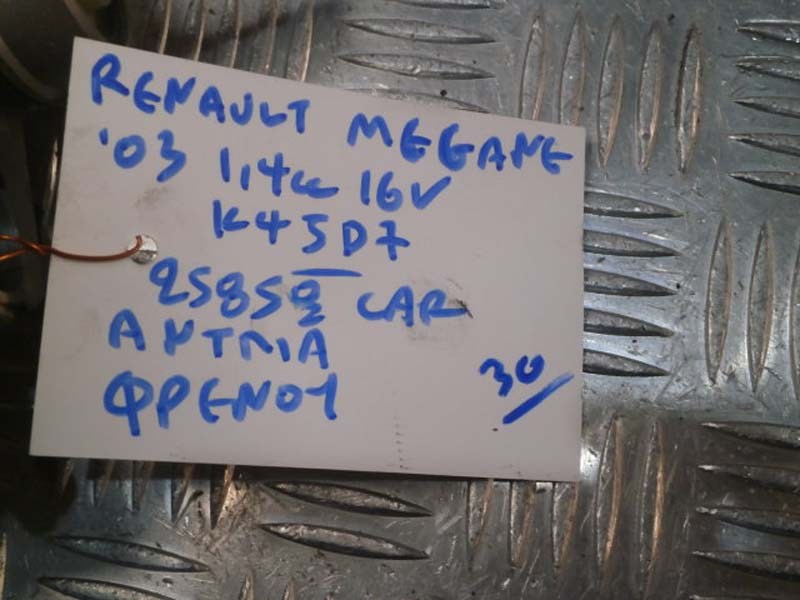 RENAULT MEGANE
'03 1,4cc 16V
K4JD7
25850 CAR
ΑΝΤΛΙΑ
ΦΡΕΝΟΥ
30